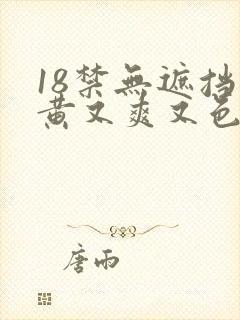 18禁無遮挡
黄又爽又色
唐雨